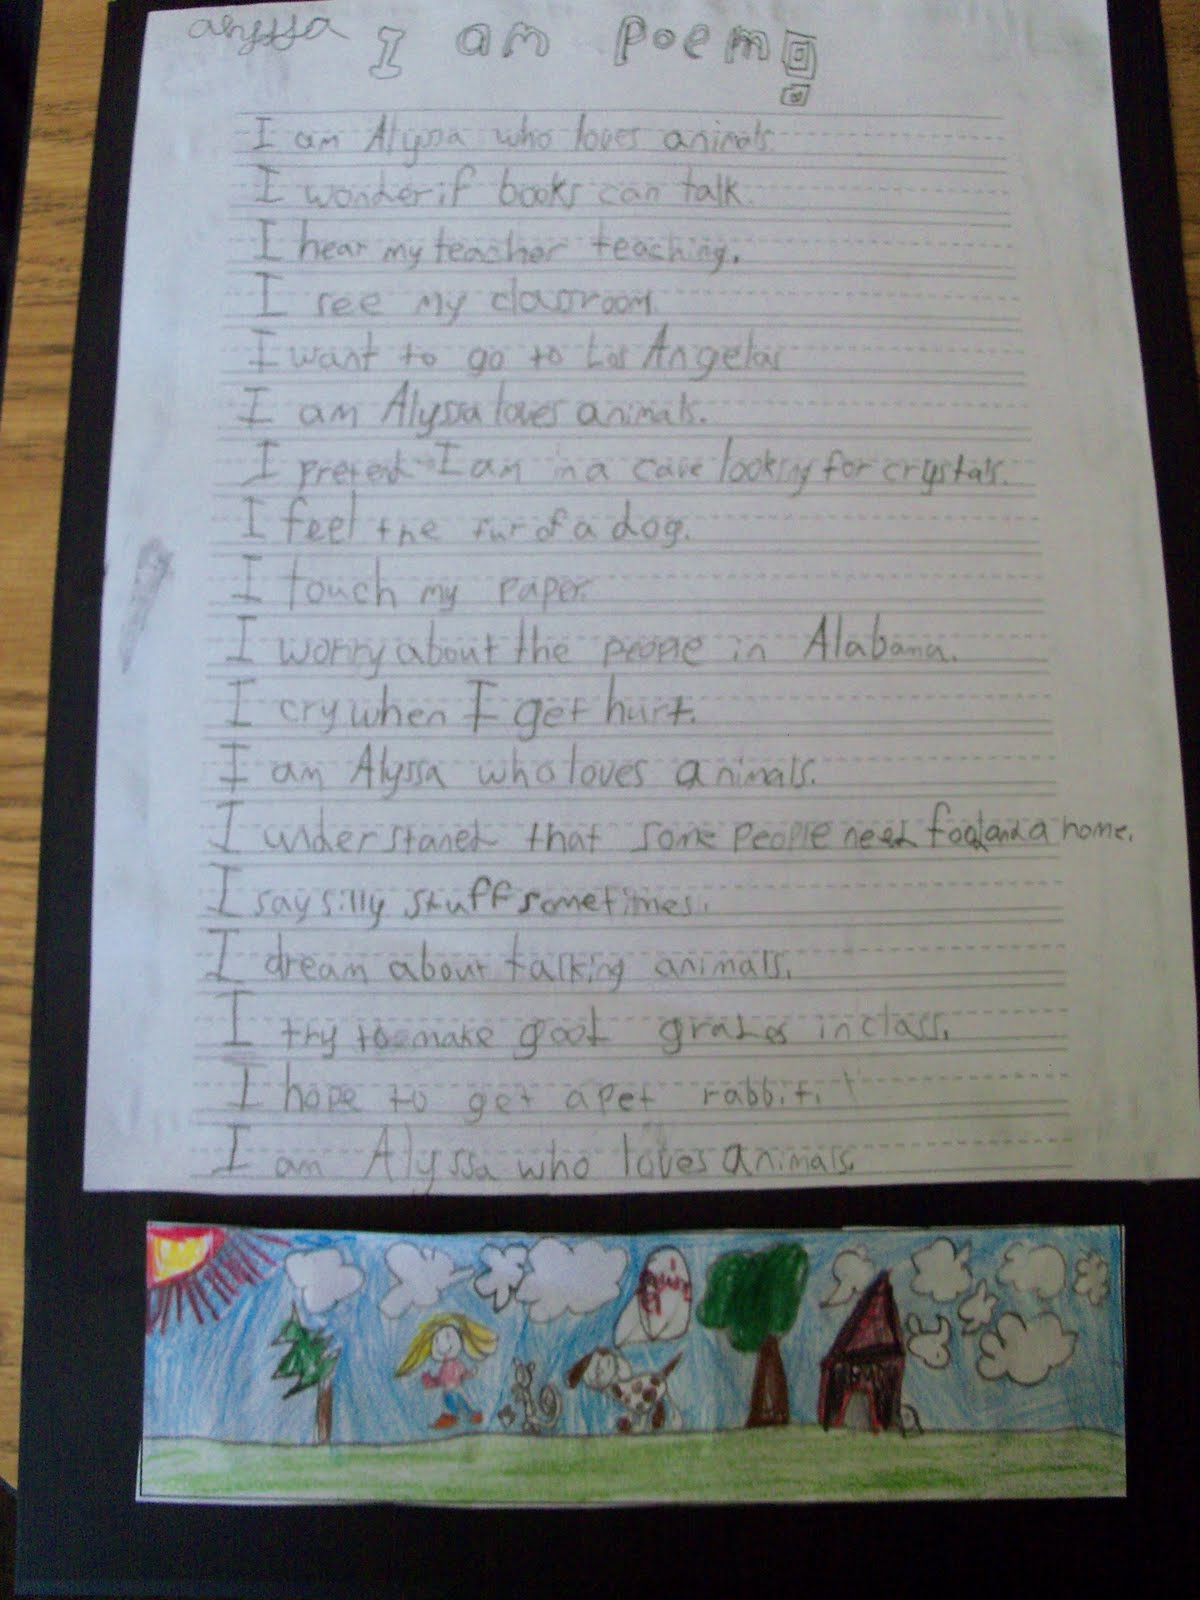 alyssa I am Poem!
I am Alyssa who loves animals.
I wonder if books can talk.
I hear my teacher teaching.
I see my classroom.
I want to go to Los Angelas
I am Alyssa loves animals.
I pretend I am in a cave looking for crystals.
I feel the fur of a dog.
I touch my paper.
I worry about the people in Alabama.
I cry when I get hurt.
I am Alyssa who loves animals.
I understand that some people need food and a home.
I say silly stuff sometimes.
I dream about talking animals.
I try to make good grades in class.
I hope to get a pet rabbit.
I am Alyssa who loves animals.